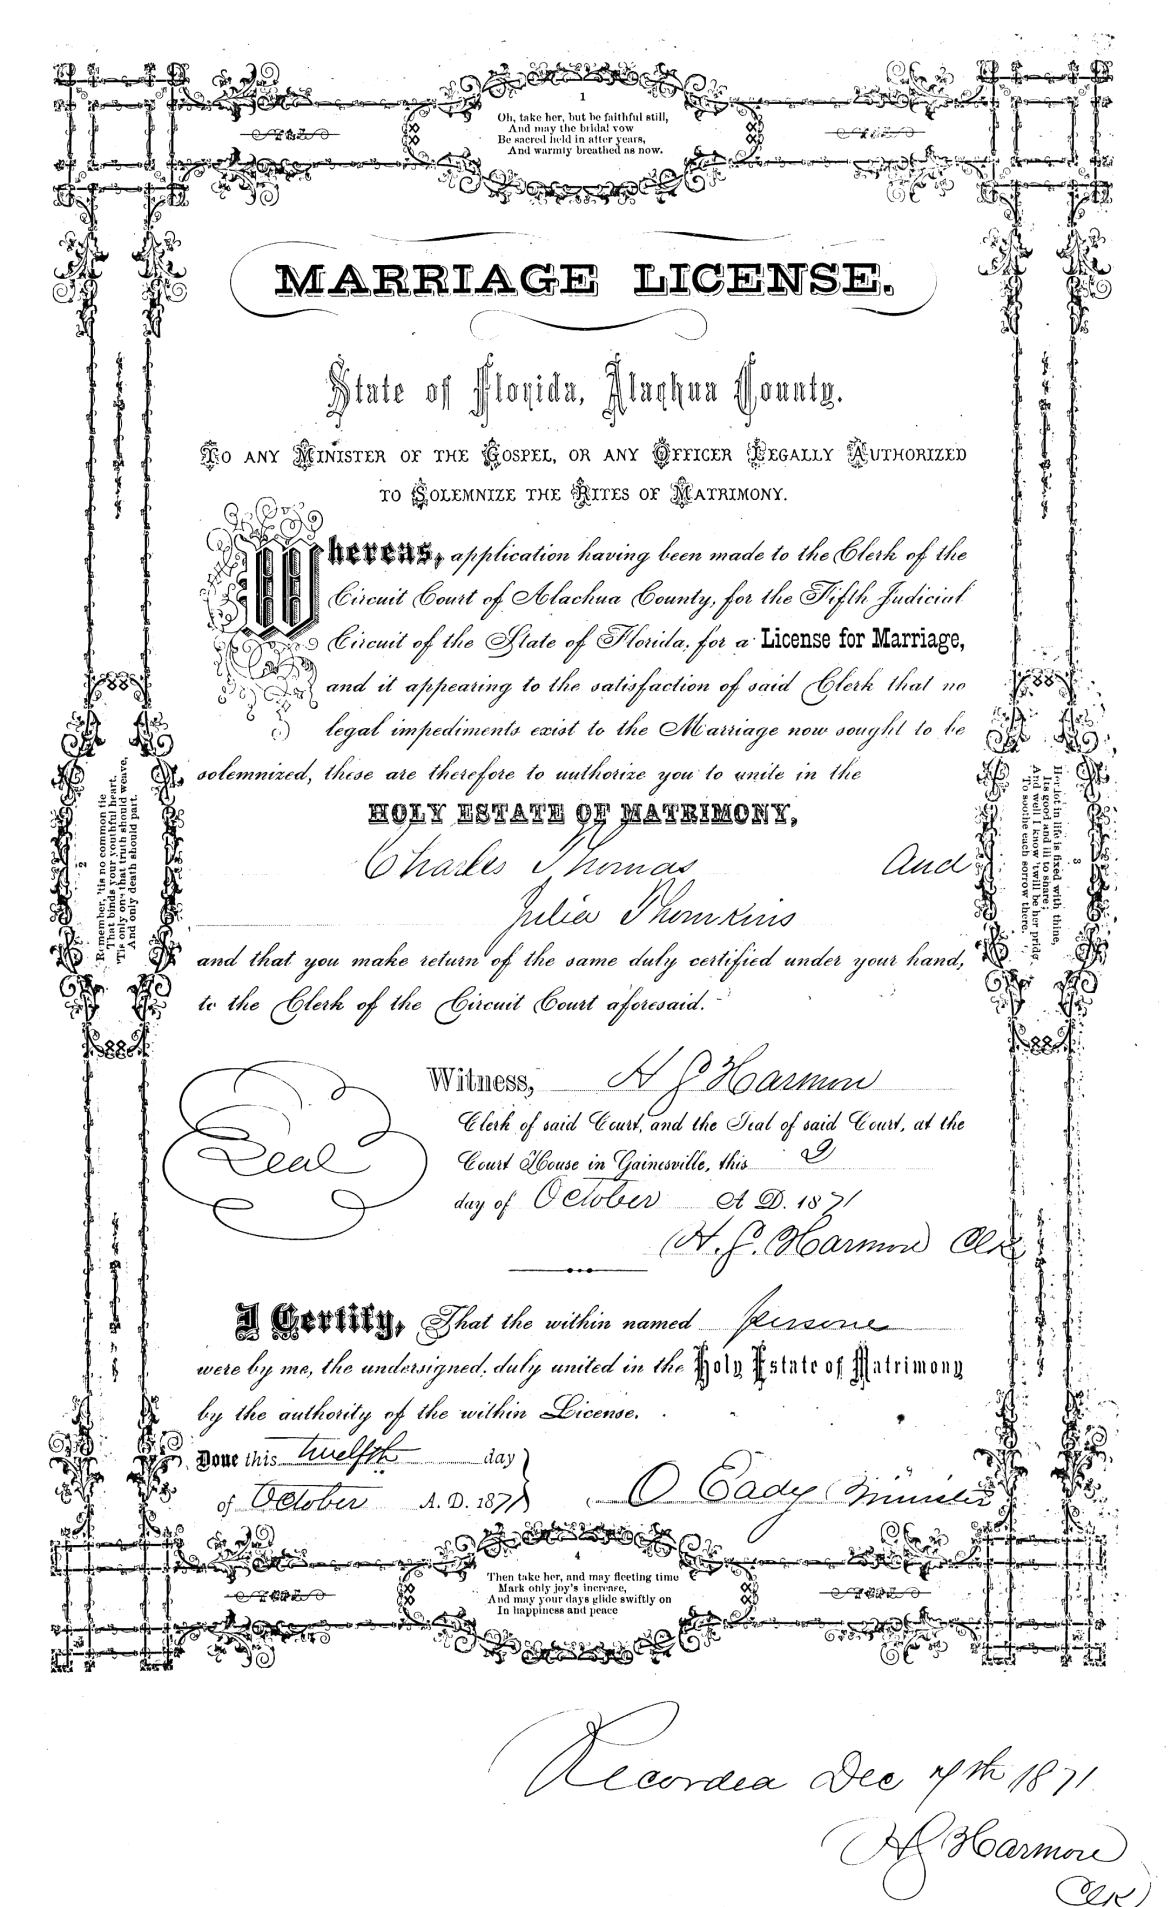 1
Oh, take her, but be faithful still,
And may the bridal vow
Be sacred held in after years,
And warmly breathed as now.
MARRIAGE LICENSE.
State of Florida, Alachua County.
TO ANY MINISTER OF THE GOSPEL, OR ANY OFFICER LEGALLY AUTHORIZED
TO SOLEMNIZE THE RITES OF MATRIMONY.
Whereas, application having been made to the Clerk of the
Circuit Court of Alachua County, for the Fifth Judicial
Circuit of the State of Florida, for a License for Marriage,
and it appearing to the satisfaction of said Clerk that no
legal impediments exist to the Marriage now sought to be
solemnized, these are therefore to authorize you to unite in the
HOLY ESTATE OF MATRIMONY,
Charles Thomas And
Julia Thomkins
and that you make return of the same duly certified under your hand,
to the Clerk of the Circuit Court aforesaid.
2
Remember, 'tis no common tie
That binds your youthful heart,
'Tis one that only truth should weave,
And only death should part.
3
Her lot in life is fixed with thine,
Its good and ill to share;
And well I know 'twill be her pride,
To soothe each sorrow there.
Seal
Witness, H J Harmon
Clerk of said Court, and the Seal of said Court, at the
Court House in Gainesville, this 2
day of October A D. 1871
H. J. Harmon Clk
I Certify, That the within named persons
were by me, the undersigned, duly united in the Holy Estate of Matrimony
by the authority of the within License.
Done this twelfth day
of October A. D. 1871
O Eady Minister
4
Then take her, and may fleeting time
Mark only joy's increase,
And may your days glide swiftly on
In happiness and peace
Recorded Dec 7th 1871
H J Harmon
Clk